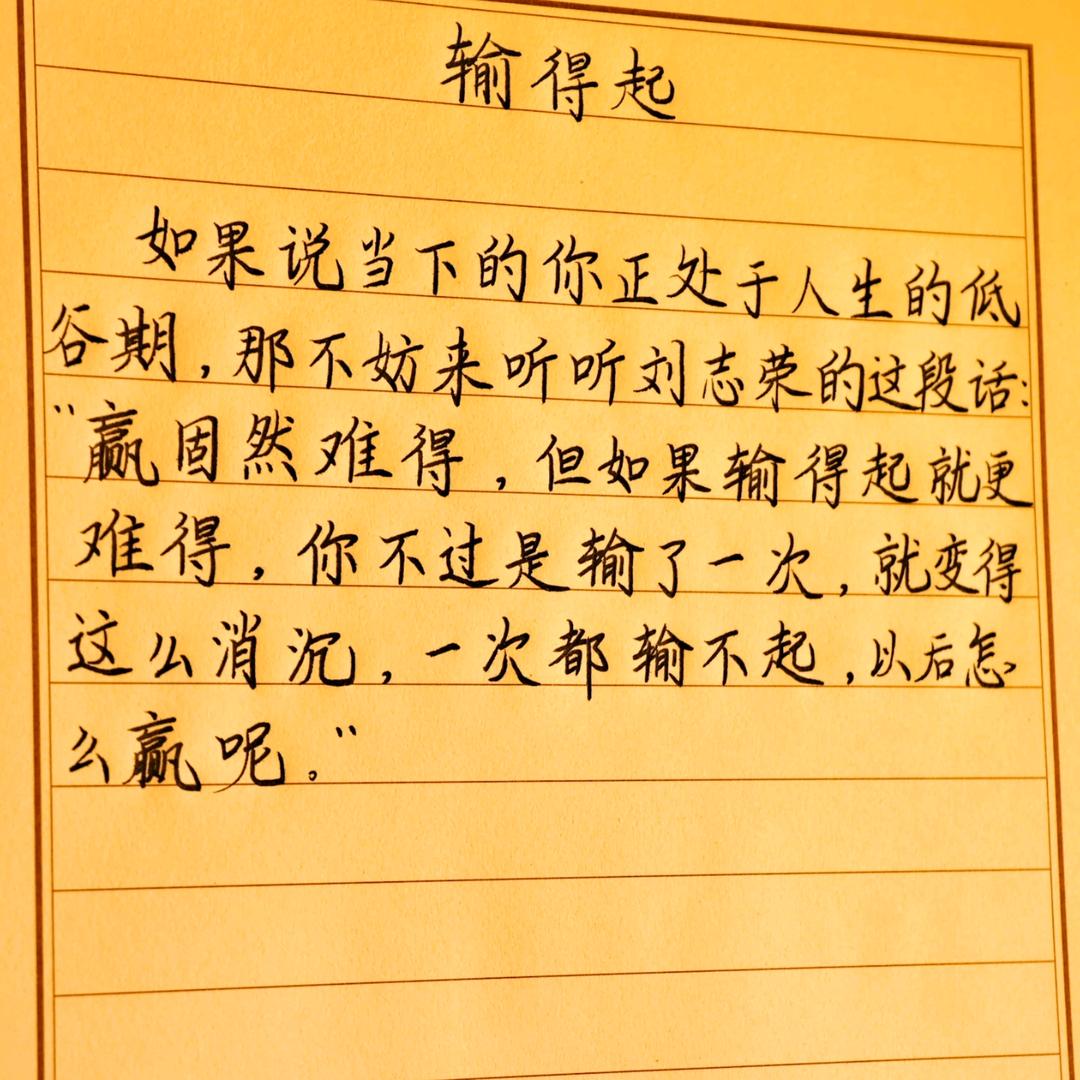 输得起
如果说当下的你正处于人生的低
谷期，那不妨来听听刘志荣的这段话：
“赢固然难得，但如果输得起就更
难得，你不过是输了一次，就变得
这么消沉，一次都输不起，以后怎
么赢呢。”